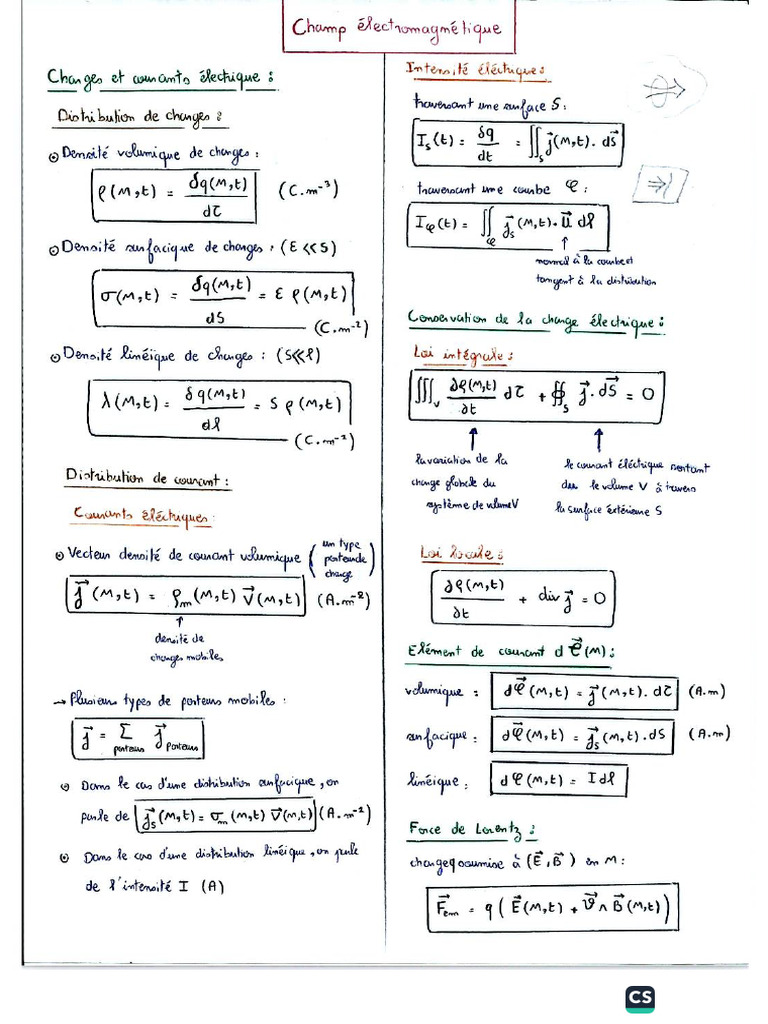 Champ électromagnétique
Charges et courants électrique :
Distribution de charges :
Densité volumique de charges :
ρ(M,t) = δq(M,t) / dτ (C.m⁻³)
Densité surfacique de charges : (ε << S)
σ(M,t) = δq(M,t) / dS = ε ρ(M,t)
(C.m⁻²)
Densité linéique de charges : (S << ℓ)
λ(M,t) = δq(M,t) / dℓ = S ρ(M,t)
(C.m⁻²)
Distribution de courant :
Courants électriques
Vecteur densité de courant volumique (un type porteur de charge)
j⃗(M,t) = ρₘ(M,t) v⃗(M,t) (A.m⁻²)
↑
densité de
charges mobiles
→ Plusieurs types de porteurs mobiles :
j⃗ = Σ porteurs j⃗ porteurs
Dans le cas d'une distribution surfacique, on
parle de j⃗ₛ(M,t) = σₘ(M,t) v⃗(M,t) (A.m⁻²)
Dans le cas d'une distribution linéique, on parle
de l'intensité I (A)
Intensité électrique :
traversant une surface S :
Iₛ(t) = δq / dt = ∬ₛ j⃗(M,t). dS⃗
traversant une courbe φ :
Iφ(t) = ∬φ j⃗ₛ(M,t). u⃗ dℓ
↑
normal à la courbe et
tangent à la distribution
Conservation de la charge électrique :
Loi intégrale :
∭ᵥ ∂ρ(M,t) / ∂t dτ + ∯ₛ j⃗. dS⃗ = 0
↑ ↑
la variation de la
charge globale du
système de volume V
le courant électrique sortant
du le volume V à travers
la surface extérieure S
Loi locale :
∂ρ(M,t) / ∂t + div j⃗ = 0
Elément de courant d𝒞⃗(M) :
volumique : d𝒞⃗(M,t) = j⃗(M,t). dτ (A.m)
surfacique : d𝒞⃗(M,t) = j⃗ₛ(M,t). dS (A.m)
linéique : d𝒞(M,t) = I dℓ
Force de Lorentz :
charge q soumise à (E⃗, B⃗) en M :
F⃗ₑₘ = q ( E⃗(M,t) + v⃗ ∧ B⃗(M,t) )
CS